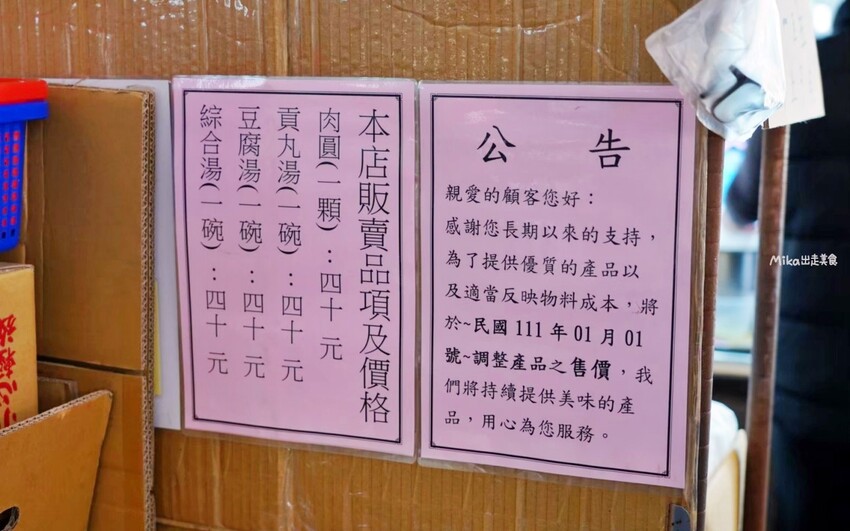 本店販賣品項及價格
肉圓(一顆)：四十 元
貢丸湯(一碗)：四十 元
豆腐湯(一碗)：四十 元
綜合湯(一碗)：四十 元
公 告
親愛的顧客您好：
感謝您長期以來的支持，
為了提供優質的產品以
及適當反映物料成本，將
於~民國 111 年 01 月 01
號~調整產品之售價，我
們將持續提供美味的產
品，用心為您服務。
Mika出走美食